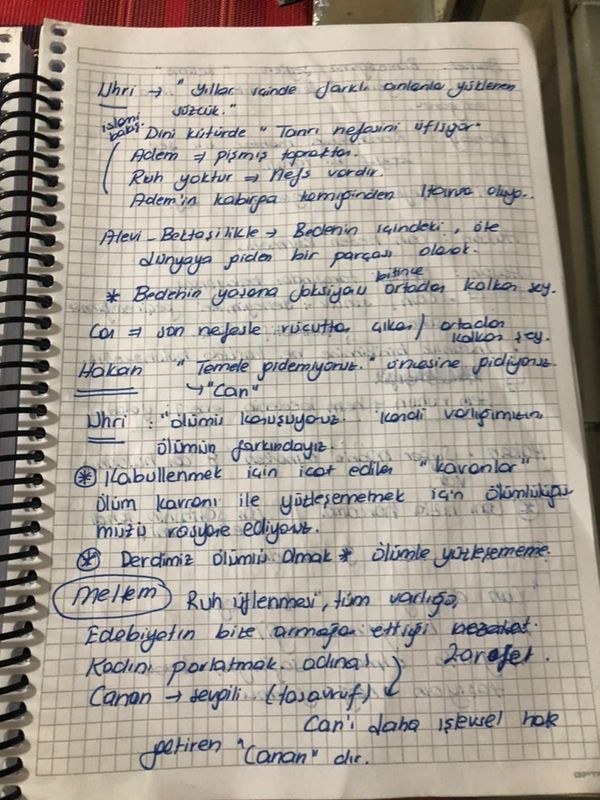 Uhri → "Yıllar içinde farklı anlamla yüklenen
sözcük."
islami bakış.
Dini kültürde "Tanrı nefesini üflüyor"
Adem ⇒ pişmiş topraktan.
Ruh yoktur ⇒ Nefs vardır.
Adem'in kaburga kemiğinden Havva oluyo..
Alevi-Bektaşilikte → Bedenin içindeki, öte
dünyaya giden bir parçası olarak.
* Bedenin yaşama fonksiyonu bitince ortadan kalkan şey.
Can ⇒ son nefesle vücuttan çıkan / ortadan
kalkan şey.
Hakan "Temele gidemiyoruz." öncesine gidiyoruz.
↳ "Can"
Uhri : "ölümü konuşuyoruz. Kendi varlığımızın,
ölümün farkındayız.
* Kabullenmek için icat edilen "kavramlar"
ölüm kavramı ile yüzleşememek için ölümlülüğü
müzü rasyone ediyoruz.
* Derdimiz ölümlü olmak * ölümle yüzleşememe.
Meltem Ruh üflenmesi, tüm varlığa,
Edebiyatın bize armağan ettiği
Kadını parlatmak adına; zarafet.
Canan → sevgili (tasavvuf)
Can'ı daha işlevsel hale
getiren "Canan" dır.